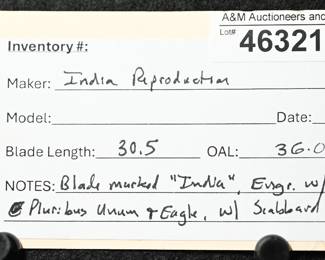 A&M Auctioneers and
Lot# 46321
Inventory #:
Maker: India Reproduction
Model: Date:
Blade Length: 30.5 OAL: 36.0
NOTES: Blade marked "India", Engr. w/
E Pluribus Unum & Eagle, w/ Scabbard